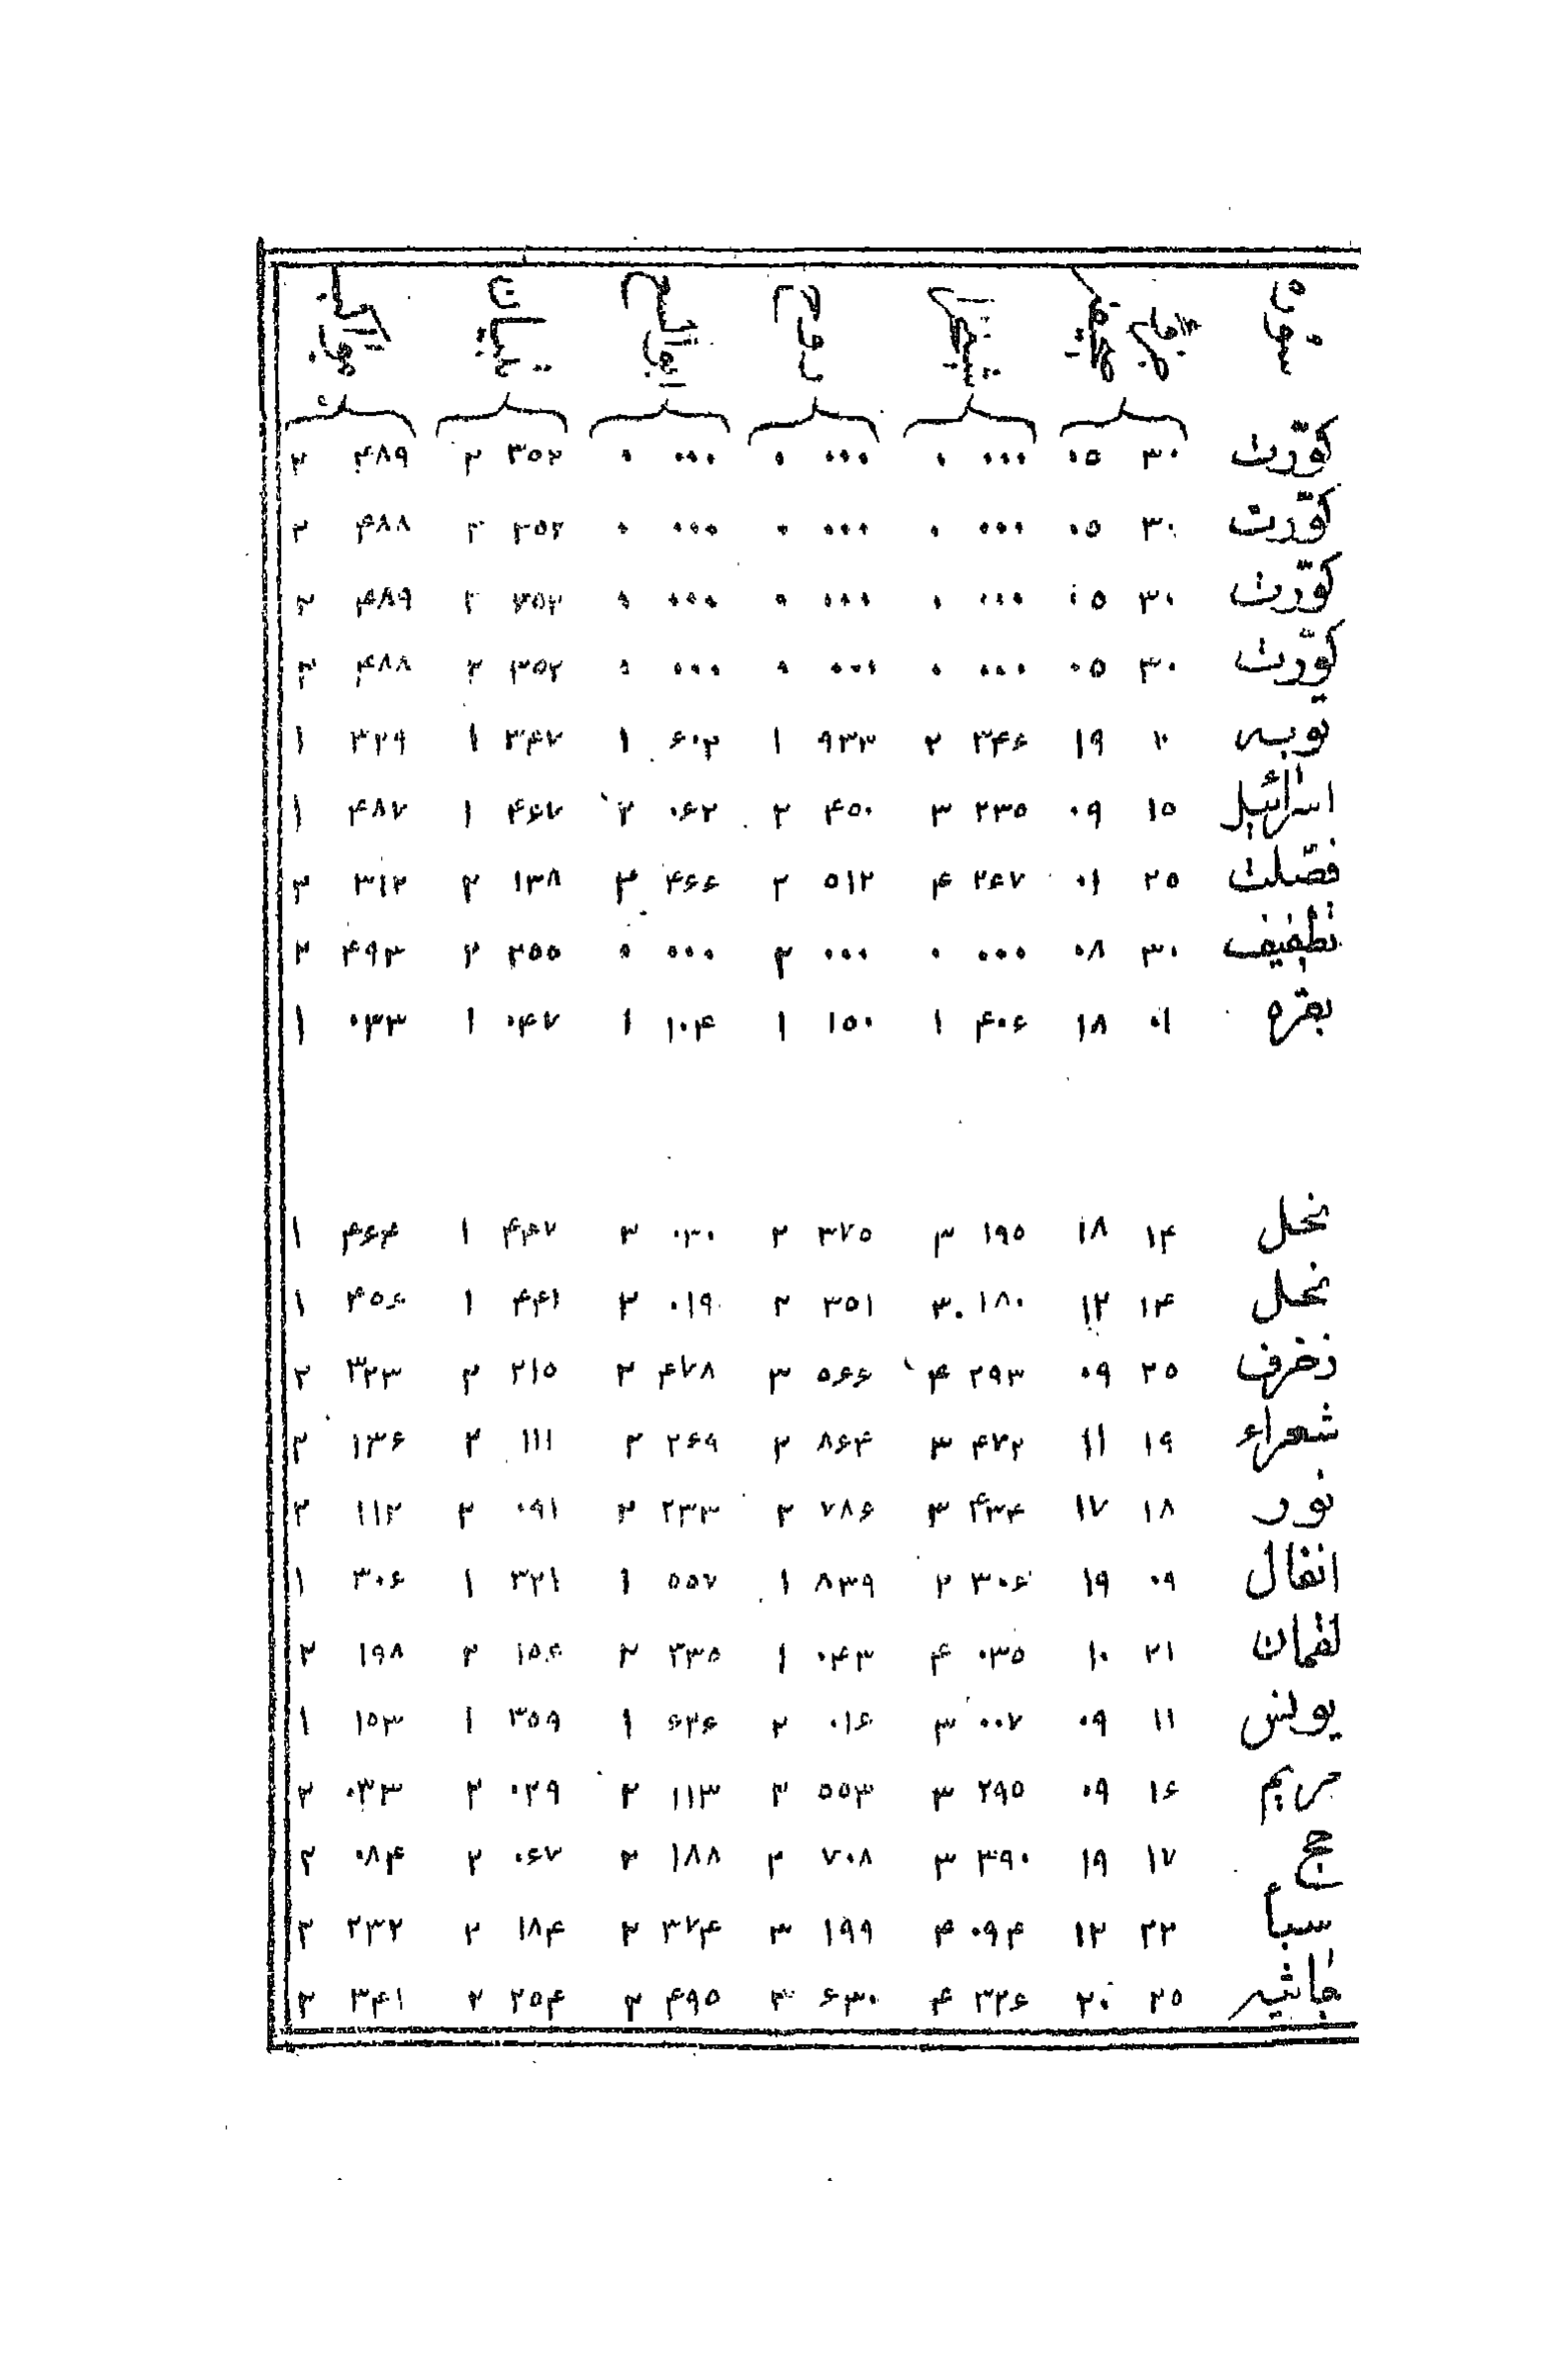 کوّرت ۳۰ ۰۵ ۰۰۰ ۰ ۰۰۰ ۰ ۰۰۰ ۰ ۳۵۲ ۲ ۴۸۹ ۲
کوّرت ۳۰ ۰۵ ۰۰۰ ۰ ۰۰۰ ۰ ۰۰۰ ۰ ۳۵۲ ۲ ۴۸۸ ۲
کوّرت ۳۰ ۰۵ ۰۰۰ ۰ ۰۰۰ ۰ ۰۰۰ ۰ ۳۵۲ ۲ ۴۸۹ ۲
کوّرت ۳۰ ۰۵ ۰۰۰ ۰ ۰۰۰ ۰ ۰۰۰ ۰ ۳۵۲ ۲ ۴۸۸ ۲
توبه ۱۰ ۱۹ ۳۴۶ ۲ ۹۳۳ ۱ ۶۰۲ ۱ ۳۴۷ ۱ ۳۲۹ ۱
اسرائیل ۱۵ ۰۹ ۲۳۵ ۳ ۴۵۰ ۲ ۰۶۲ ۲ ۴۶۷ ۱ ۴۸۷ ۱
فصّلت ۲۵ ۰۱ ۲۶۷ ۴ ۵۱۲ ۲ ۴۶۶ ۲ ۱۳۸ ۲ ۳۱۲ ۲
تطفیف ۳۰ ۰۸ ۰۰۰ ۰ ۰۰۰ ۲ ۰۰۰ ۰ ۳۵۵ ۲ ۴۹۳ ۲
بقره ۰۱ ۱۸ ۴۰۶ ۱ ۱۵۰ ۱ ۱۰۴ ۱ ۰۴۷ ۱ ۰۳۳ ۱
نحل ۱۴ ۱۸ ۱۹۵ ۳ ۳۷۵ ۲ ۰۳۰ ۲ ۴۴۷ ۱ ۴۶۴ ۱
نحل ۱۴ ۱۲ ۱۸۰ ۳ ۳۵۱ ۲ ۰۱۹ ۲ ۴۴۱ ۱ ۴۵۶ ۱
زخرف ۲۵ ۰۹ ۲۹۳ ۴ ۵۶۶ ۳ ۴۷۸ ۲ ۲۱۵ ۲ ۳۲۳ ۲
شعراء ۱۹ ۱۱ ۴۷۲ ۳ ۸۶۴ ۲ ۲۶۹ ۲ ۱۱۱ ۲ ۱۳۶ ۲
نور ۱۸ ۱۷ ۴۳۴ ۳ ۷۸۶ ۲ ۲۳۳ ۲ ۰۹۱ ۲ ۱۱۲ ۲
انفال ۰۹ ۱۹ ۳۰۶ ۲ ۸۳۹ ۱ ۵۵۷ ۱ ۳۲۱ ۱ ۳۰۶ ۱
لقمان ۲۱ ۱۰ ۰۳۵ ۴ ۰۴۳ ۱ ۳۳۵ ۲ ۱۵۶ ۲ ۱۹۸ ۲
یونس ۱۱ ۰۹ ۰۰۷ ۳ ۰۱۶ ۲ ۶۲۶ ۱ ۳۵۹ ۱ ۱۵۳ ۱
مریم ۱۶ ۰۹ ۲۹۵ ۳ ۵۵۳ ۲ ۱۱۳ ۲ ۰۲۹ ۲ ۰۳۳ ۲
حج ۱۷ ۱۹ ۳۹۰ ۳ ۷۰۸ ۲ ۱۸۸ ۲ ۰۶۷ ۲ ۰۸۴ ۲
سبأ ۲۲ ۱۲ ۰۹۴ ۴ ۱۹۹ ۳ ۳۷۴ ۲ ۱۸۴ ۲ ۲۳۲ ۲
جاثیه ۲۵ ۲۰ ۳۲۶ ۴ ۶۳۰ ۳ ۴۹۵ ۲ ۲۵۴ ۲ ۳۴۱ ۲